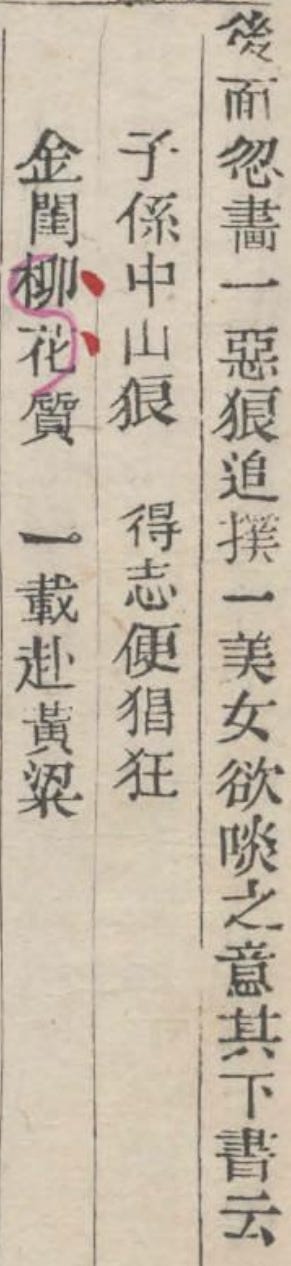 後面忽畵一惡狼追撲一美女欲啖之意其下書云
子係中山狼　得志便猖狂
金閨柳花質　一載赴黃粱